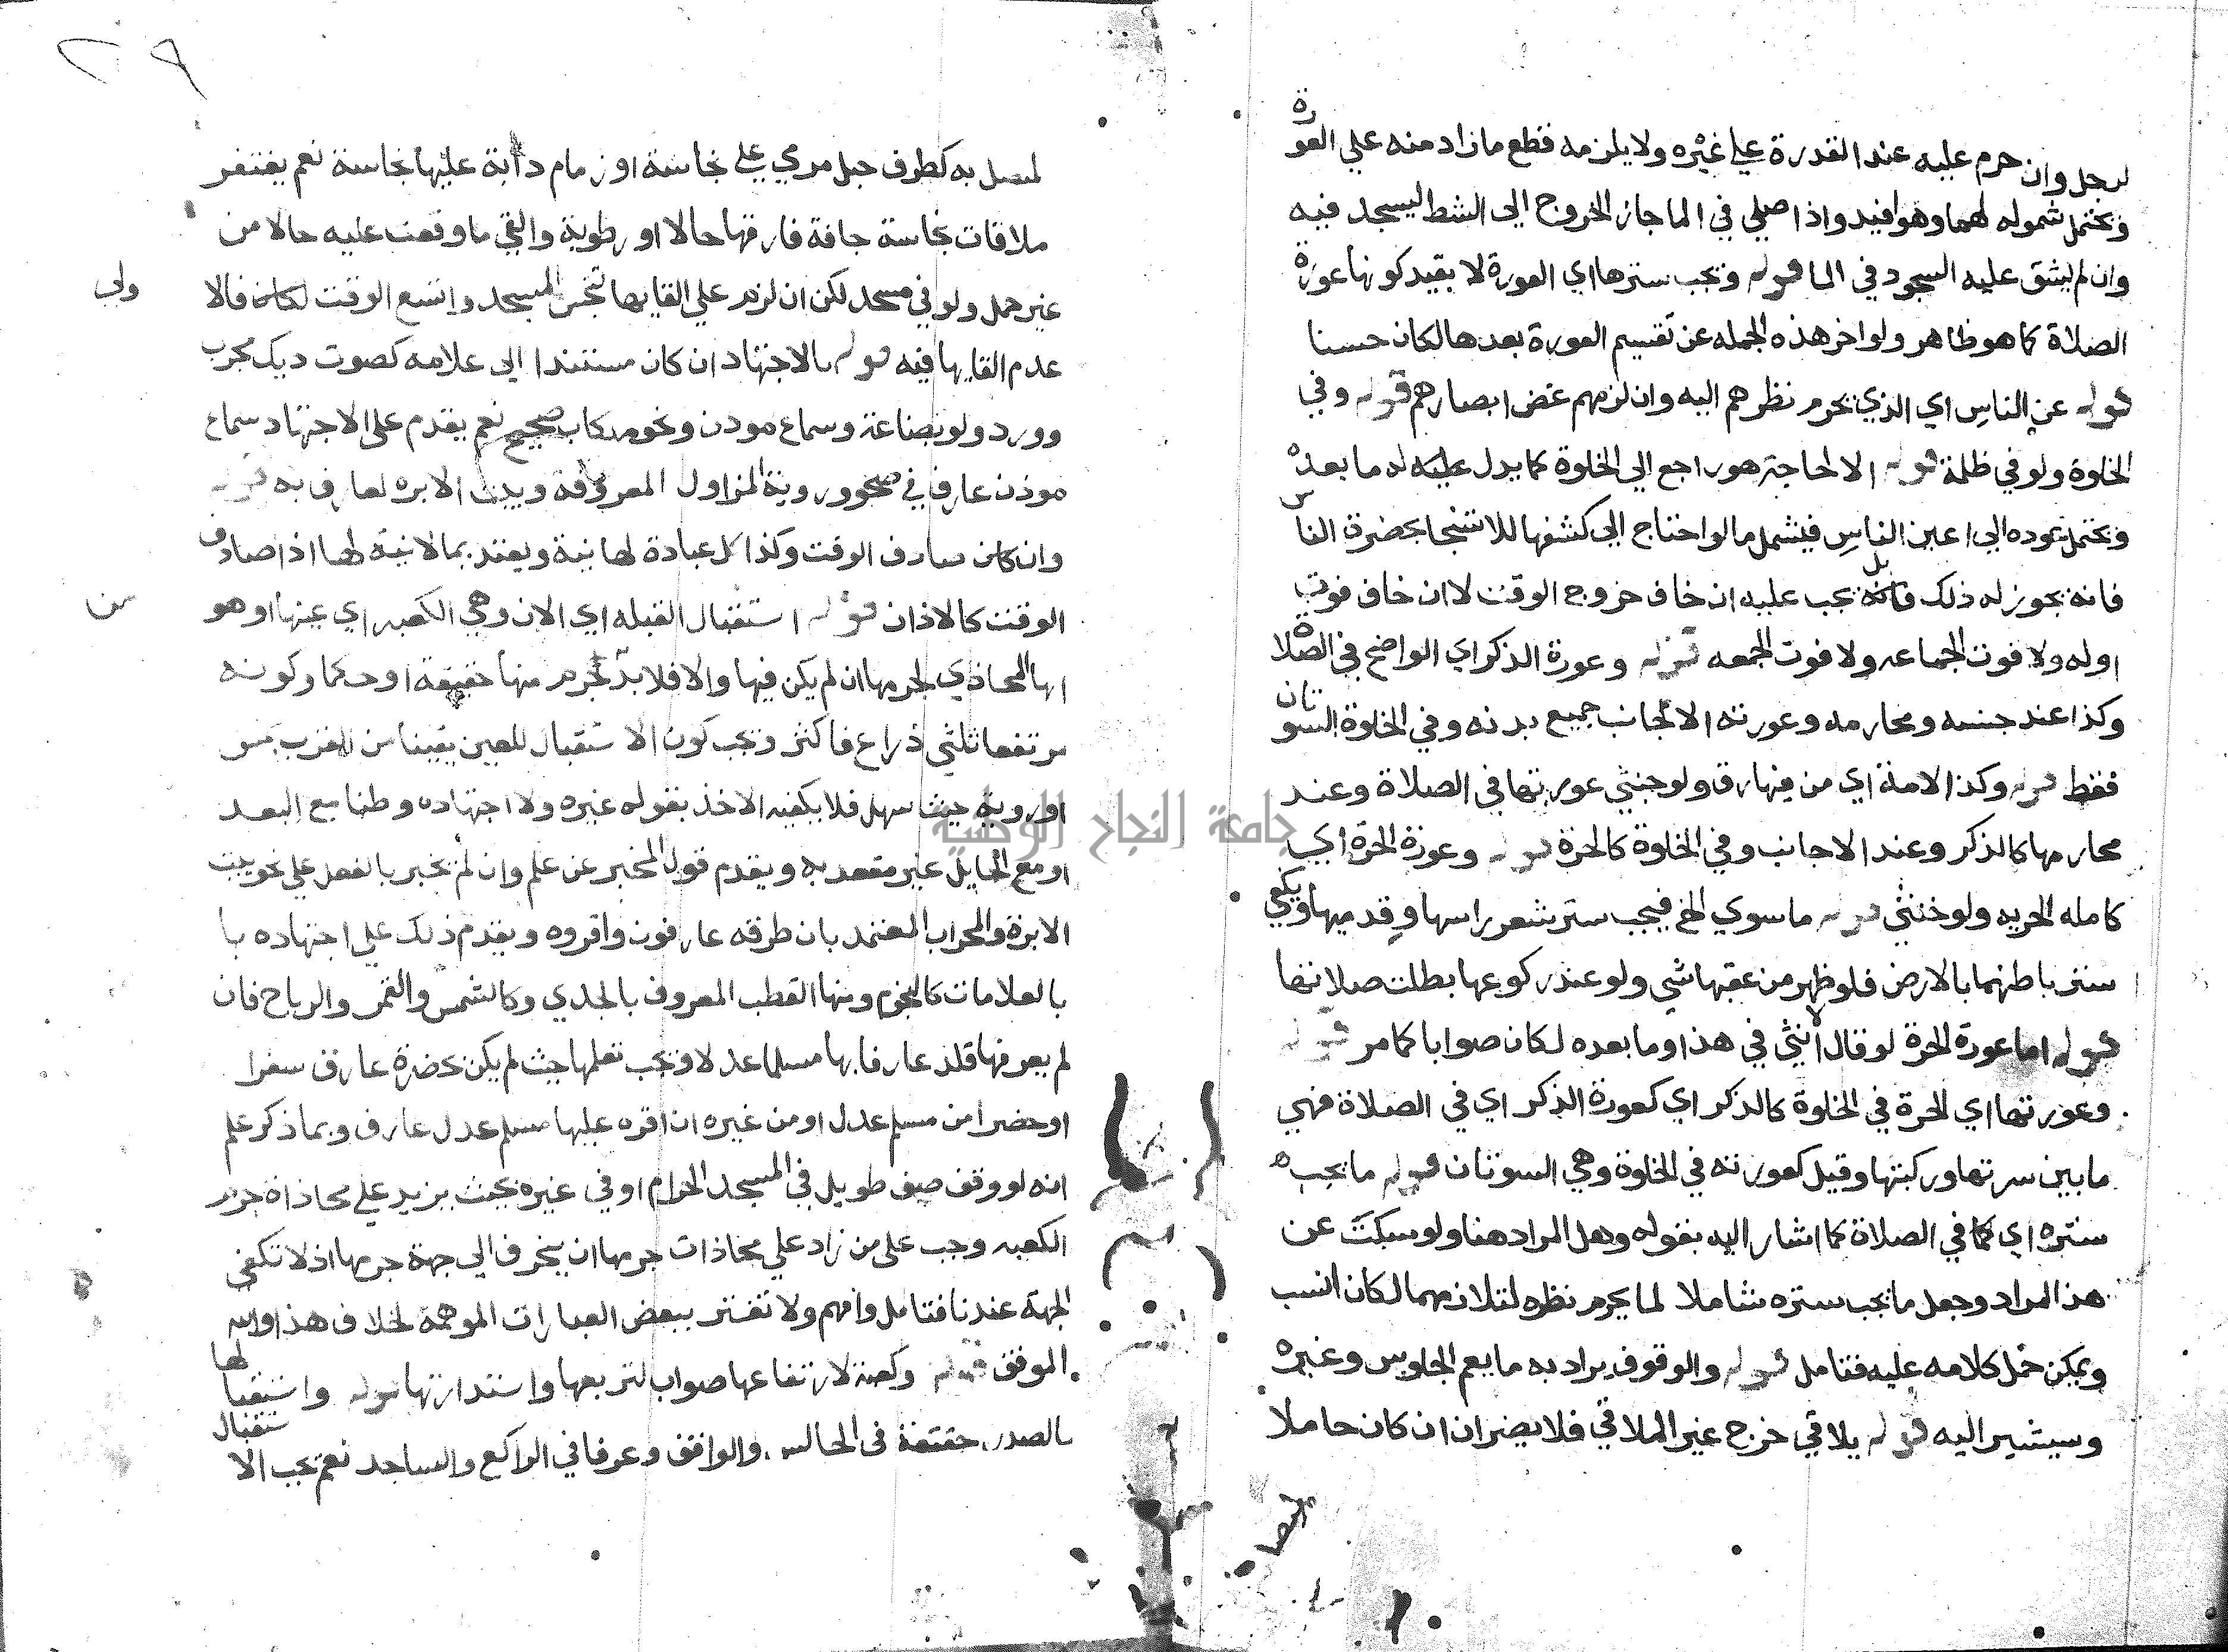 لرجل وان حرم عليه عند القدرة علي غيره ولا يلزمه قطع ما زاد منه علي العورة
ويحتمل شموله لهما وهو افيد واذا صلي في الما جاز الخروج الي الشط ليسجد فيه
وان لم يشق عليه السجود في الما قوله ويجب سترها اي العورة لا بقيد كونها عورة
الصلاة كما هو ظاهر ولو اخر هذه الجمله عن تقسيم العورة بعدها لكان حسنا
قوله عن الناس اي الذي يحرم نظرهم اليه وان لزمهم غض ابصارهم قوله وفي
الخلوة ولو في ظلمة قوله الا لحاجة هو راجع الي الخلوة كما يدل عليه له ما بعده
ويحتمل عوده الي اعين الناس فيشمل ما لو احتاج الي كشفها للاستنجا بحضرة الناس
فانه يجوز له ذلك بل يجب عليه ان خاف خروج الوقت لا ان خاف فوت
اوله ولا فوت الجماعه ولا فوت الجمعه قوله وعورة الذكر اي الواضح في الصلاة
وكذا عند جنسه ومحارمه وعورته الاجانب جميع بدنه وفي الخلوة السوتان
فقط قوله وكذا الامة اي من فيها رق ولو خنثي عورتها في الصلاة وعند
محارمها كالذكر وعند الاجانب وفي الخلوة كالحرة قوله وعورة الحرة اي
كامله الحريه ولو خنثي قوله ما سوي الخ فيجب ستر شعر راسها وقدميها ويكفي
ستر باطنهما بالارض فلو ظهر من عقبها شي ولو عند ركوعها بطلت صلاتها
قوله اما عورة الحرة لو قال الانثي في هذا وما بعده لكان صوابا كما مر قوله
وعورتها اي الحرة في الخلوة كالذكر اي كعورة الذكر اي في الصلاة فهي
ما بين سرتها وركبتها وقيل كعورته في الخلوة وهي السوتان قوله ما يجب
ستره اي كما في الصلاة كما اشار اليه بقوله وهل المراد هنا ولو سكت عن
هذا المراد وجعل ما يجب ستره شاملا لما يحرم نظره لتلازمهما لكان انسب
ويمكن حمل كلامه عليه فتامل قوله والوقوف يراد به ما يعم الجلوس وغيره
وسيشير اليه قوله يلاقي خرج غير الملاقي فلا يضر ان ان كان حاملا
لمتصل به كطرف حبل مرمي علي نجاسة او زمام دابة عليها نجاسة نعم يغتفر
ملاقات نجاسة جافة فارقها حالا او رطوبة والقي ما وقعت عليه حالا من
غير حمل ولو في مسجد لكن ان لزم علي القايها تنجس المسجد واتسع الوقت فالا ولي
عدم القايها فيه قوله بالاجتهاد ان كان مستندا الي علامه كصوت ديك مجرب
وورد ولو بصناعة وسماع موذن ونحو مكاب صحيح نعم يقدم علي الاجتهاد سماع
موذن عارف في صحو ورويه المزاول المعروفه وبيت الابره لعارف به قوله
وان كان صادف الوقت وكذا كل عبادة لها نية ويعتد بما لا نية لها اذا صادف
الوقت كالاذان قوله استقبال القبله اي الان وهي الكعبه اي عينها او هو
ايها المحاذي لجرمها ان لم يكن فيها والا فلا بد بجرم منها حقيقة او حكما وكونه من
مرتفعا ثلثي ذراع فاكثر ويجب كون الاستقبال للعين يقينا من القرب بمس
او روية حيث سهل فلا يكفيه الاخذ بقول غيره ولا اجتهاده وظنا مع البعد
او مع الحايل غير متعد به ويقدم قول المخبر عن علم وان لم يخبر بالفعل علي نحو بيت
الابرة والمحراب المعتمد بان طرقه عارفون واقروه ويقدم ذلك علي اجتهاده با
بالعلامات كالنجوم ومنها القطب المعروف بالجدي وكالشمس والقمر والرياح فان
لم يعرفها قلد عارفا بها مسلما عدلا ويجب تعلمها حيث لم يكن بحضرة عارف سفرا
او حضرا من مسلم عدل او من غيره ان اقره عليها مسلم عدل عارف وبما ذكر علم
انه لو وقف صف طويل في المسجد الحرام او في غيره بحيث يزيد علي محاذاة جرم
الكعبه وجب علي من زاد علي محاذات جرمها ان ينحرف الي جهة جرمها اذ لا تكفي
الجهة عندنا فتامل وافهم ولا تغتر ببعض العبارات الموهمة لخلاف هذا والله
الموفق قوله وكعبة لارتفاعها صواب لتربعها واستدارتها قوله واستقبالها
بالصدر حقيقة في الجالس والواقف وعرفا في الراكع والساجد نعم يجب الاستقبال
ايصا
جامعة النجاح الوطنية